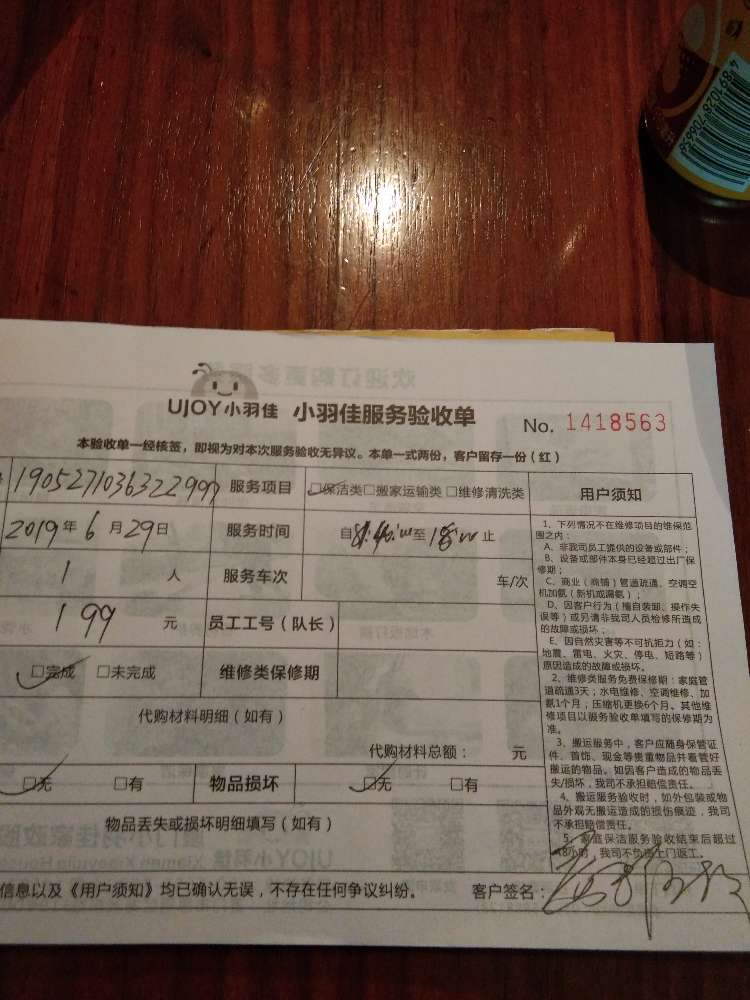 UJOY小羽佳 小羽佳服务验收单 No. 1418563
本验收单一经核签，即视为对本次服务验收无异议。本单一式两份，客户留存一份（红）
服务项目 □保洁类□搬家运输类□维修清洗类
2019年6月29日 服务时间 自 至 18:00 止
1 人 服务车次 车/次
199 元 员工工号（队长）
□完成 □未完成 维修类保修期
代购材料明细（如有）
代购材料总额： 元
□无 □有 物品损坏 □无 □有
物品丢失或损坏明细填写（如有）
信息以及《用户须知》均已确认无误，不存在任何争议纠纷。 客户签名：
用户须知
1、下列情况不在维修项目的维保范
围之内：
A、非我司员工提供的设备或部件；
B、设备或部件本身已经超过出厂保
修期；
C、商业（商铺）管道疏通、空调空
机加氨（新机或漏氨）；
D、因客户行为（擅自装卸、操作失
误等）或另请非我司人员检修所造成
的故障或损坏；
E、因自然灾害等不可抗拒力（如：
地震、雷电、火灾、停电、短路等）
原因造成的故障或损坏。
2、维修类服务免费保修期：家庭管
道疏通3天；水电维修、空调维修、加
氨1个月；压缩机更换6个月。其他维
修项目以服务验收单填写的保修期为
准。
3、搬运服务中，客户应随身保管证
件、首饰、现金等贵重物品并看管好
搬运的物品。如因客户造成的物品丢
失/损坏，我司不承担赔偿责任。
4、搬运服务验收时，如外包装或物
品外观无搬运造成的损伤痕迹，我司
不承担赔偿责任。
5、家庭保洁服务验收结束后超过
48小时，我司不负责上门返工。